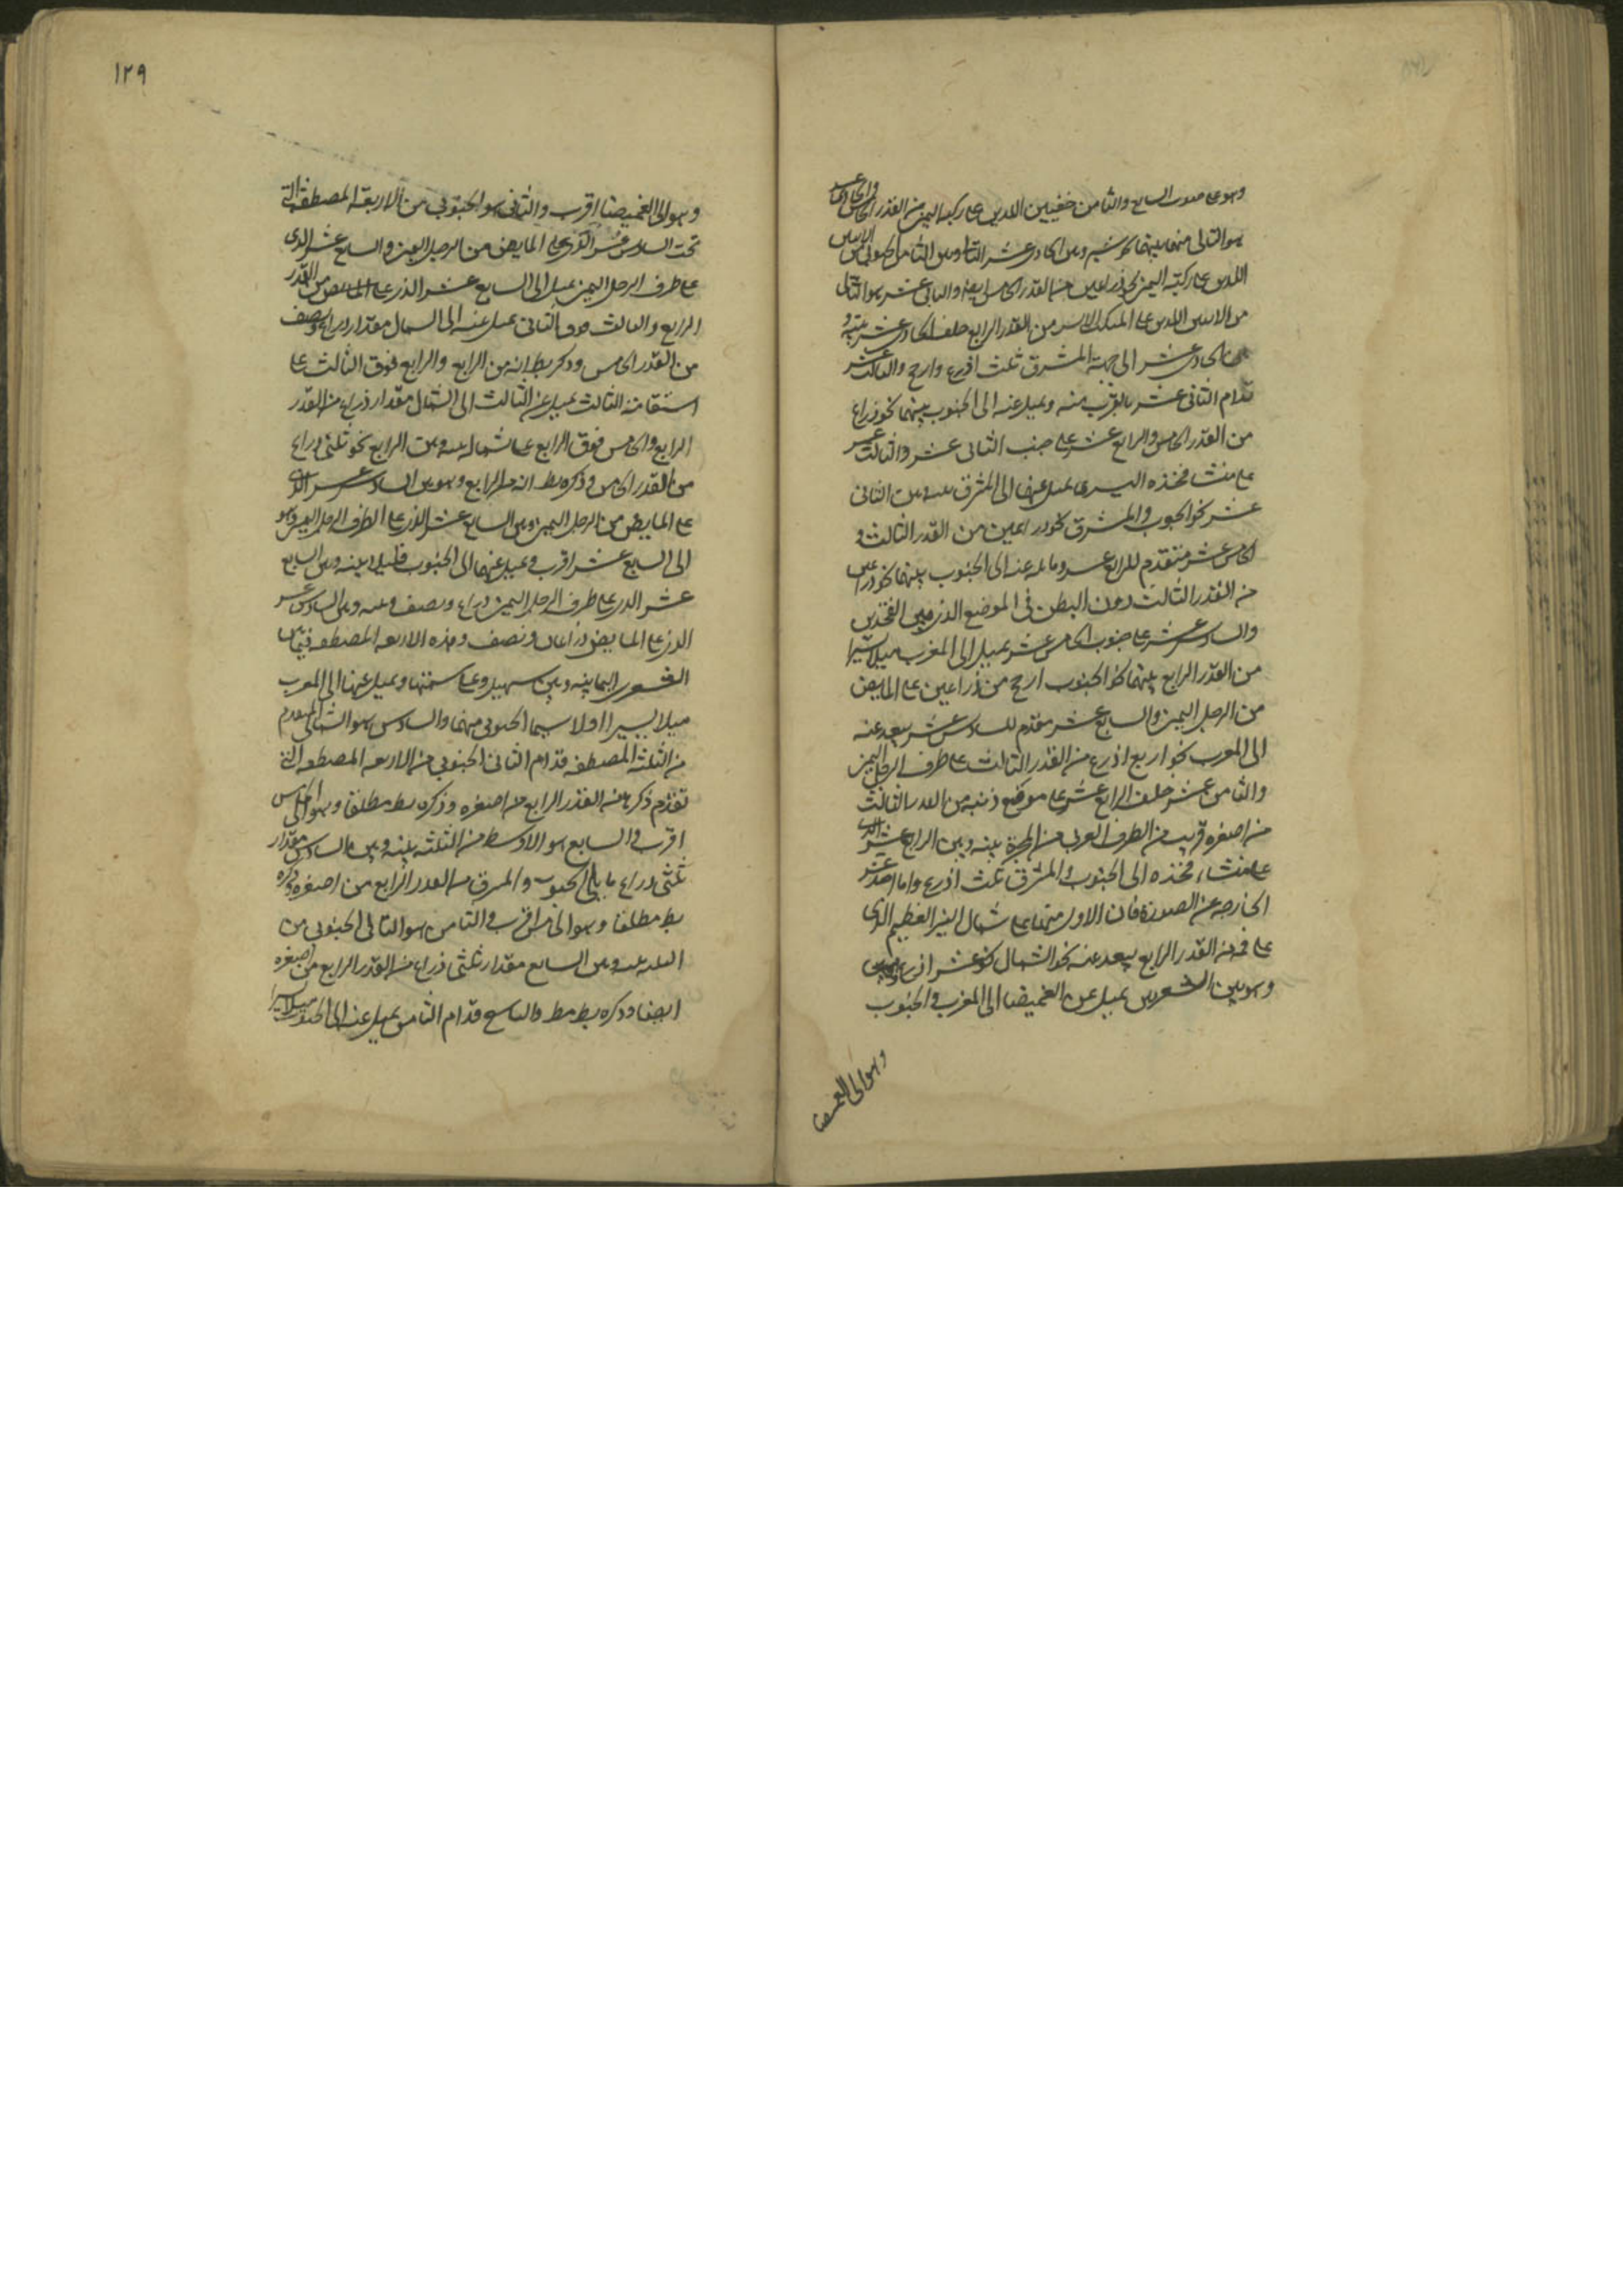 وهو على جنوب السابع والثامن خفيين اللذين على ركبة اليمنى من القدر الخامس والحادى عشر
هو التالى منهما بينهما نحو شبر وبين الحادى عشر التالى وبين الثامن الجنوبى من الاثنين
اللذين على ركبته اليمنى نحو ذراعين من القدر الخامس ايضا والثانى عشر هو التالى
من الاثنين اللذين على المنكب الايسر من القدر الرابع خلف الحادى عشر بينه و
بين الحادى عشر الى جهة المشرق ثلث اذرع وارجح والثالث عشر
قدام الثانى عشر بالقرب منه ويميل عنه الى الجنوب بينهما نحو ذراع
من القدر الخامس والرابع عشر على جنب الثانى عشر والثالث عشر
على منشا فخذه اليسرى يميل عنهما الى المشرق بينه وبين الثانى
عشر نحو الجنوب والمشرق نحو ذراعين من القدر الثالث و
الخامس عشر متقدم للرابع عشر ومايله عنه الى الجنوب بينهما نحو ذراعين
من القدر الثالث دون البطن فى الموضع الذى بين الفخذين
والسادس عشر على جنوب الخامس عشر يميل الى المغرب ميلا يسيرا
من القدر الرابع بينهما نحو الجنوب ارجح من ذراعين على المابض
من الرجل اليمنى والسابع عشر متقدم للسادس عشر يبعد عنه
الى المغرب نحو اربع اذرع من القدر الثالث على طرف الرجل اليمنى
والثامن عشر خلف الرابع عشر على موضع ذنبه من القدر الثالث
من اصغره قريب من الطرف الغربى من المجرة بينه وبين الرابع عشر الذى
على منشاء فخذه الى الجنوب والمشرق ثلث اذرع واما احد عشر
الخارجه عن الصورة فان الاول منها على شمال النير العظيم الذى
على فمه من القدر الرابع يبعد عنه نحو الشمال نحو عشر اذرع
وهو بين الشعريين يميل عن الغميضا الى المغرب والجنوب
وهو الى الغميصا
١٢٩
وهو الى الغميصا اقرب والثانى هو الجنوبى من الاربعة المصطفة التى
تحت السادس عشر الذى على المابض من الرجل اليمنى والسابع عشر الذى
على طرف الرجل اليمنى يميل الى السابع عشر الذى على المابض من القدر
الرابع والثالث فوق الثانى يميل عنه الى الشمال مقدار ذراع ونصف
من القدر الخامس وذكر بط انه من الرابع والرابع فوق الثالث على
استقامة الثالث يميل عن الثالث الى الشمال مقدار ذراع من القدر
الرابع والخامس فوق الرابع على شماله بينه وبين الرابع نحو ثلثى ذراع
من القدر الخامس وذكره بط انه من الرابع وهو بين السادس عشر الذى
على المابض من الرجل اليمنى وبين السابع عشر الذى على الطرف الرجل اليمنى وهو
الى السابع عشر اقرب ويميل عنهما الى الجنوب قليلا بينه وبين السابع
عشر الذى على طرف الرجل اليمنى ذراع ونصف وبينه وبين السادس عشر
الذى على المابض ذراعان ونصف وهذه الاربعة المصطفة فيما بين
الشعرى اليمانيه وبين سهيل وعلى سمتها ويميل عنها الى المغرب
ميلا يسيرا اولا سيما الجنوبى منهما والسادس هو الشمالى المتقدم
من الثلثة المصطفه قدام الثانى الجنوبى من الاربعة المصطفه التى
تقدم ذكرها من القدر الرابع من اصغره وذكره بط مطلقا وهو الى الخامس
اقرب والسابع هو الاوسط من الثلثه بينه وبين السادس مقدار
ثلثى ذراع ما يلى الجنوب والمشرق من القدر الرابع من اصغره وذكره
بط مطلقا وهو الى اقرب والثامن هو التالى الجنوبى من
الثلثه بينه وبين السابع مقدار ثلثى ذراع من القدر الرابع من اصغره
ايضا وذكره بط مط والتاسع قدام الثامن يميل عنه الى الجنوب ميلا يسيرا